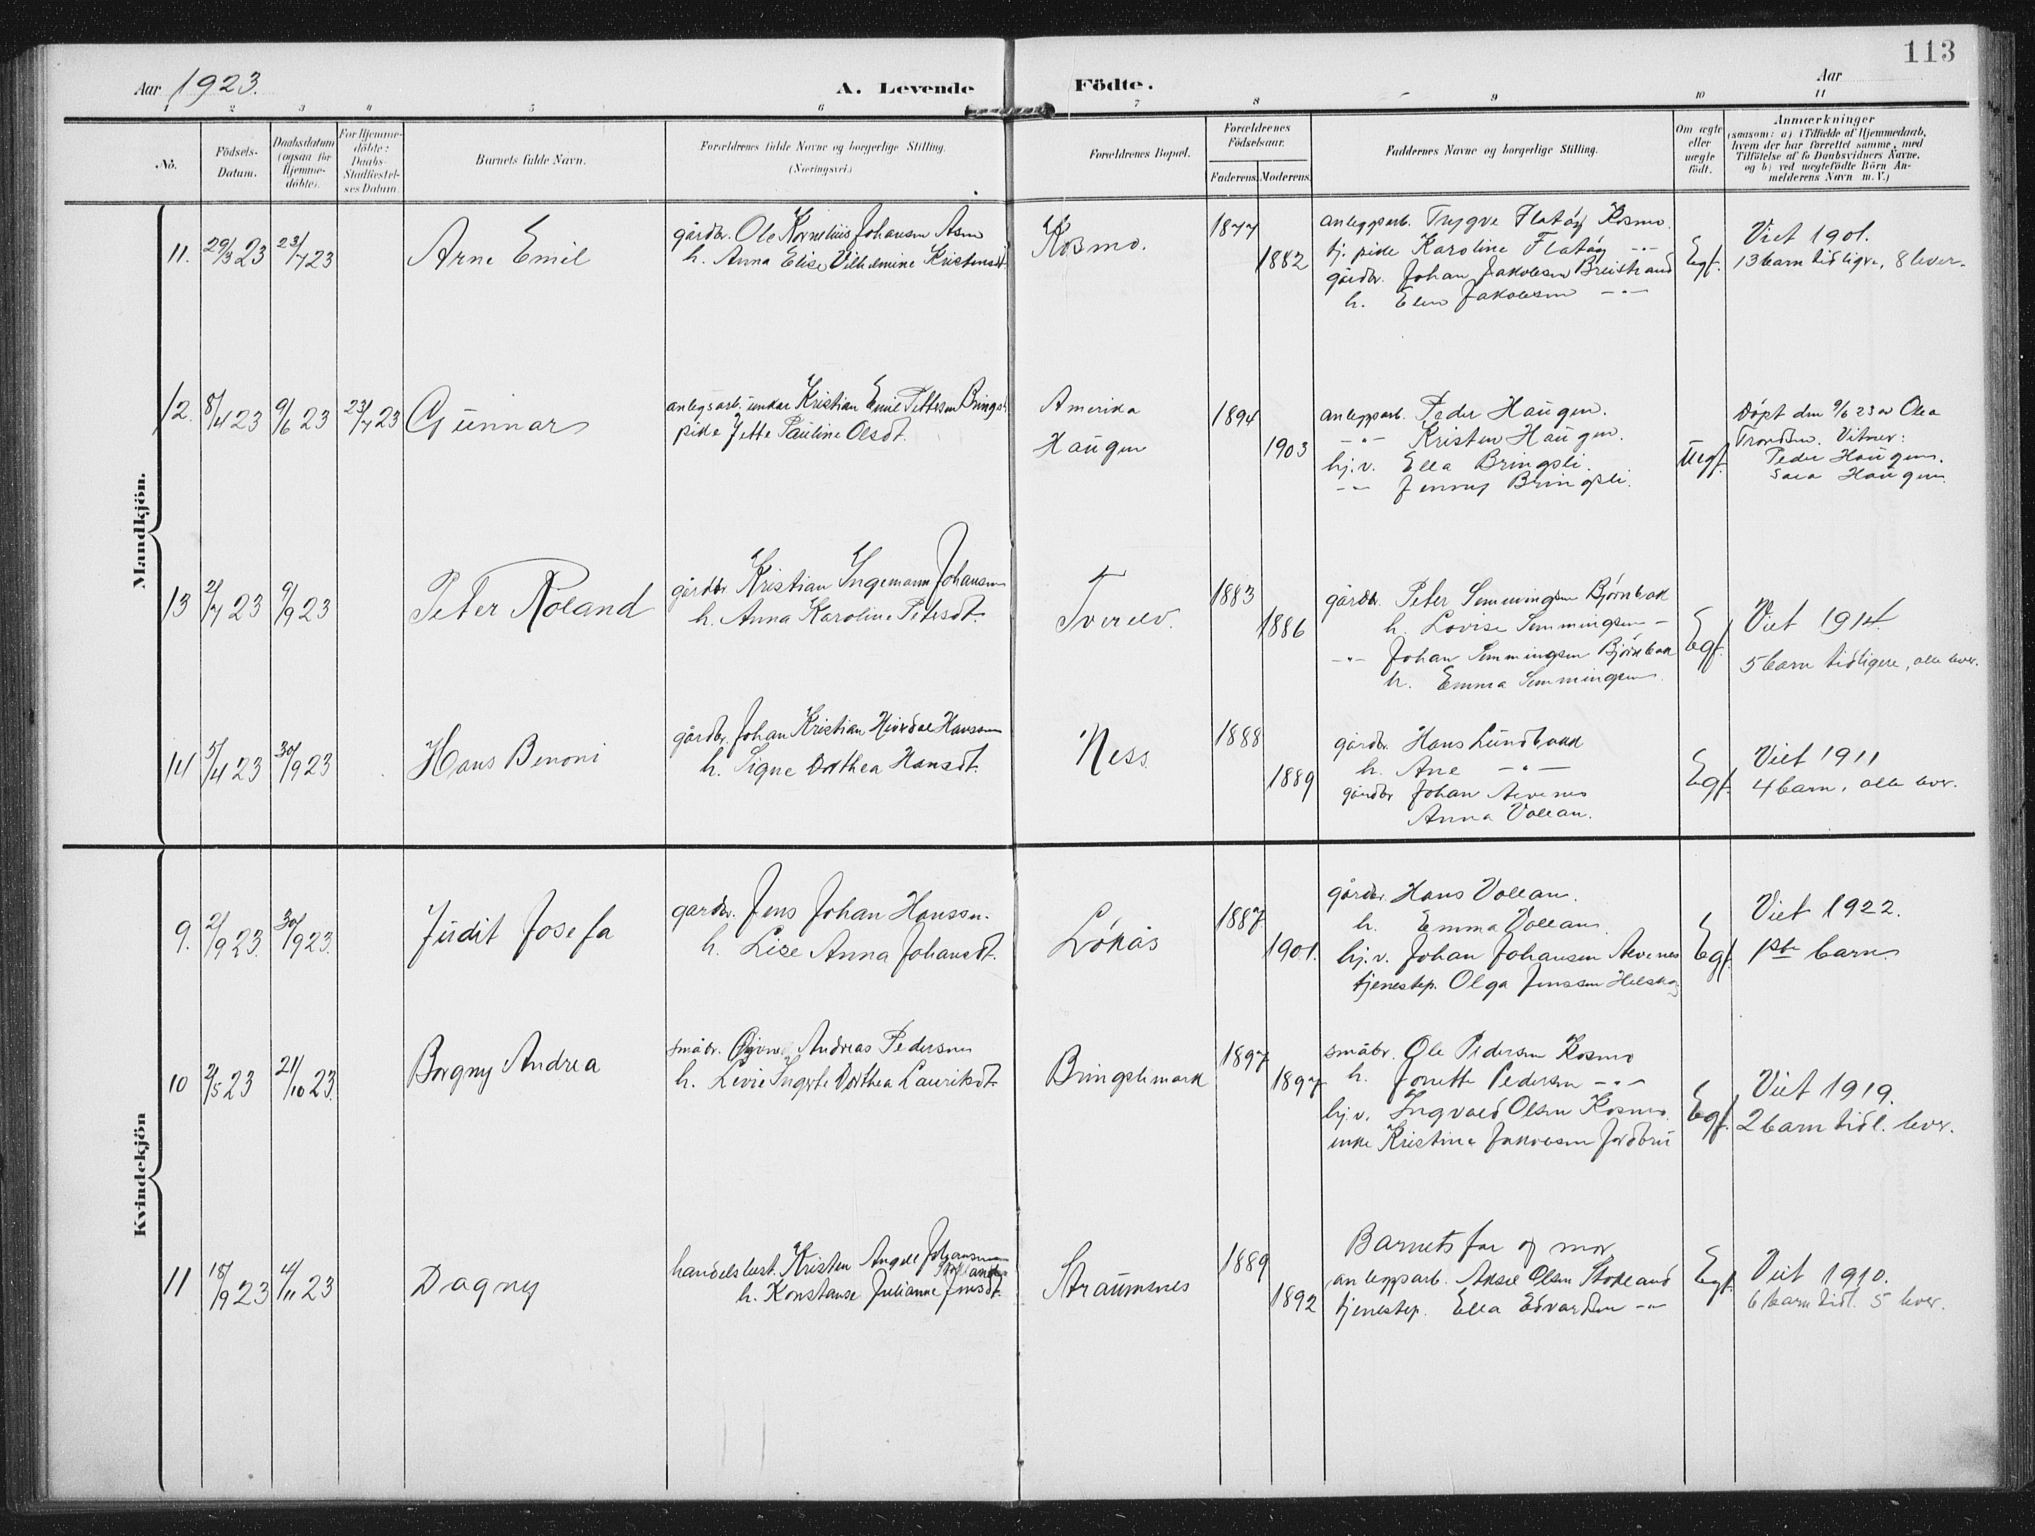 113
Aar 1923.
A. Levende Födte.
Aar
1 2 3 4 5 6 7 8 9 10 11
No.
Födsels-
Datum.
Daabsdatum
(ogsaa for
Hjemme-
döbte).
For Hjemme-
döbte:
Daabs-
Stadfæstel-
ses Datum.
Barnets fulde Navn.
Forældrenes fulde Navne og borgerlige Stilling.
(Næringsvei.)
Forældrenes Bopæl.
Forældrenes
Födselsaar.
Faderens. Moderens.
Faddernes Navne og borgerlige Stilling.
Om ægte
eller
uægte
födt.
Anmærkninger
(saasom: a) i Tilfælde af Hjemmedaab,
hvem der har forrettet samme, med
Tilföielse af to Daabsvidners Navne,
og b) ved uægtefödte Börn An-
melderens Navn m. V.)
Mandkjön.
11. 29/3 23 23/7 23 Arne Emil
gårdbr. Ole Kornelius Johansen
h. Anna Elise Vilhelmine Kristensdt.
Kosmo. 1877
1882
anleggsarb. Trygve Flatöy Kosmo.
tj. pike Karoline Flatöy -"-
gårdbr. Johan Jakobsen Breistrand
h. Elen Jakobsen -"-
Egf.
Viet 1901.
13 barn tidligre, 8 lever.
12. 8/4 23 9/6 23 23/7 23 Gunnar
anlegsarb. unkar Kristian Emil Pettersen Bringsli
pike Jette Pauline Olsdt.
Amerika
Haugen
1894
1903
anleggsarb. Peder Haugen.
-"- Kristen Haugen.
hj.v. Ella Bringsli.
-"- Jenny Bringsli.
Uegf.
Döpt den 9/6 23 av Olea
Trondsen. Vitner:
Peder Haugen.
Sara Haugen.
13 2/7 23 9/9 23 Peter Roland
gårdbr. Kristian Ingemann Johansen
h. Anna Karoline Petersdt.
Tverelv. 1883
1886
gårdbr. Peter Simmingsen Bjørnbak
h. Lovise Simmingsen -
-"- Johan Simmingsen Bjørnbak
h. Emma Simmingsen
Egf.
Viet 1914.
5 barn tidligere, alle lever.
14 5/4 23 30/9 23 Hans Benoni
gårdbr. Johan Kristian Hansen
h. Signe Dorthea Hansdt.
Ness. 1888
1889
gårdbr. Hans Lundbakk
h. Ane -"-
gårdbr Johan Alvenes
Anna Vollan.
Egf.
Viet 1911
4 barn, alle lever.
Kvindekjön
9. 2/9 23. 30/9 23. Judit Josefa
gardbr. Jens Johan Hanssen.
h. Lise Anna Johansdt.
Lökås 1887.
1901.
gårdbr. Hans Vollan.
h. Emma Vollan.
hj.v. Johan Johansen Alvenes
tjenestep. Olga Jenssen
Egf.
Viet 1922.
1ste barn.
10 2/5 23 21/10 23. Borgny Andrea
småbr. Andreas Pedersen
h. Dorthea Lauritsdt.
Bringslimark 1897
1897
småbr. Ole Pedersen Kosmo
h. Jonette Pedersen -"-
hj.v. Ingvald Olsen Kosmo.
Kristine Jakobsen Jordbru
Egf.
Viet 1919.
2 barn tidl. lever.
11 18/9 23 4/11 23 Dagny
handelsbest. Kristen Angell Johansen
Stokland
h. Konstanse Julianne Jensdt.
Straumsnes 1889
1892
Barnets far og mor
anleggsarb. Aksel Olsen Stokland
tjenestep. Ella Edvardsen -"-
Egf.
Viet 1910.
6 barn tidl. 5 lever.